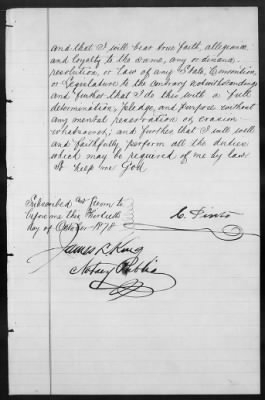 and that I will bear true faith, allegiance
and loyalty to the same, any ordinance,
resolution, or law of any State, Convention
or Legislature to the contrary notwithstanding
and further that I do this with a full
determination, pledge, and purpose without
any mental reservation or evasion
whatsoever; and further that I will well
and faithfully perform all the duties
which may be required of me by law
So help me God
Subscribed and Sworn to
before me this Thirtieth
day of October 1878
C. Pinto
James R. King
Notary Public